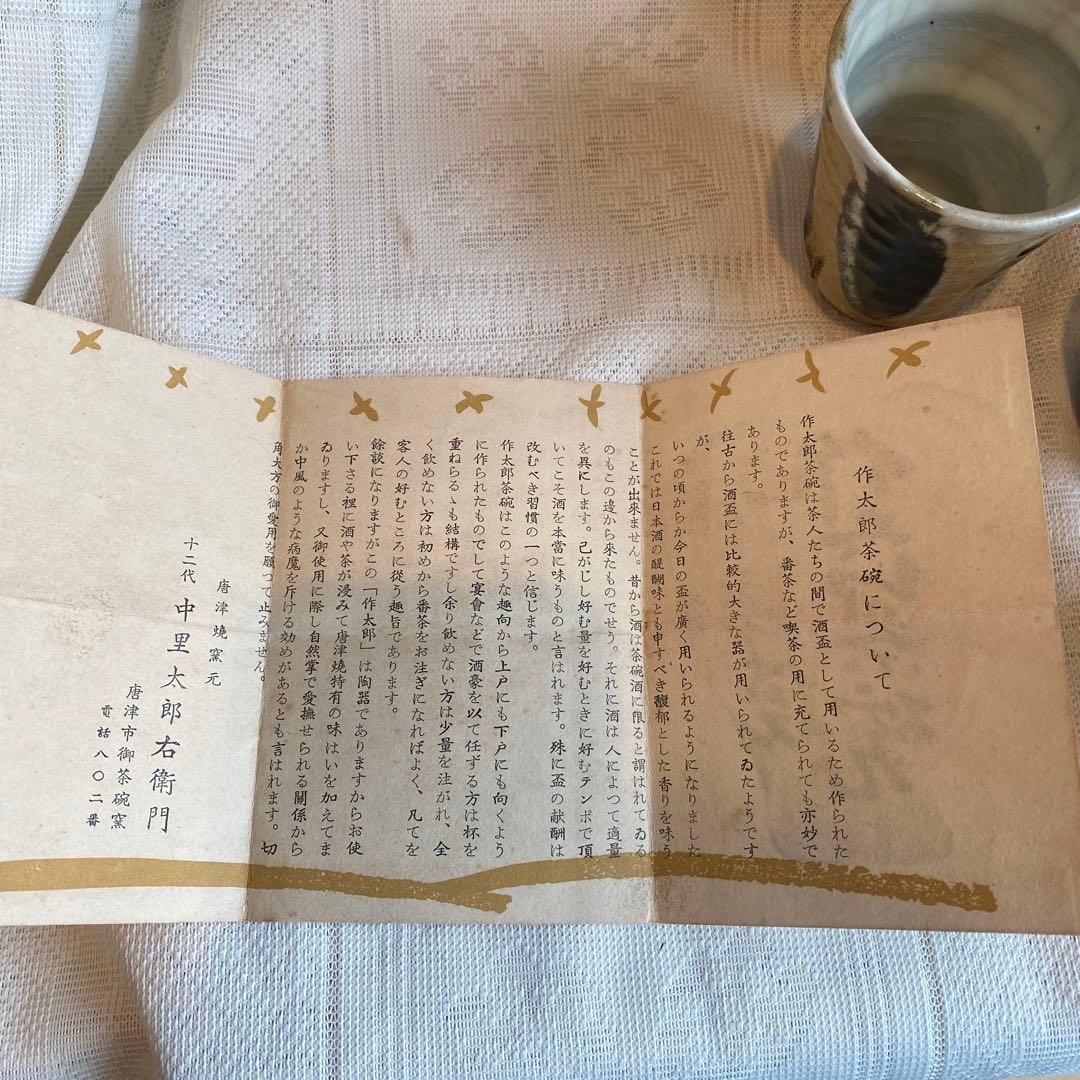 作太郎茶碗について
作太郎茶碗は茶人たちの間で酒盃として用いるため作られた
ものでありますが、番茶など喫茶の用に充てられても亦妙で
あります。
往古から酒盃には比較的大きな器が用いられてゐたようです
が、
いつの頃からか今日の盃が廣く用いられるようになりました
これでは日本酒の醍醐味とも申すべき馥郁とした香りを味う
ことが出來ません。昔から酒は茶碗酒に限ると謂はれてゐる
のもこの邊から來たものでせう。それに酒は人によつて適量
を異にします。己がじし好む量を好むときに好むテンポで頂
いてこそ酒を本當に味うものと言はれます。殊に盃の献酬は
改むべき習慣の一つと信じます。
作太郎茶碗はこのような趣向から上戸にも下戸にも向くよう
に作られたものでして宴會などで酒豪を以て任ずる方は杯を
重ねらるゝも結構ですし余り飲めない方は少量を注がれ、全
く飲めない方は初めから番茶をお注ぎになればよく、凡てを
客人の好むところに從う趣旨であります。
餘談になりますがこの「作太郎」は陶器でありますからお使
い下さる裡に酒や茶が浸みて唐津燒特有の味はいを加えてま
ゐりますし、又御使用に際し自然掌で愛撫せられる關係から
か中風のような病魔を斥ける効めがあるとも言はれます。切
角大方の御愛用を願つて止みません。
唐津燒窯元
十二代 中里太郎右衛門
唐津市御茶碗窯
電話八〇二番